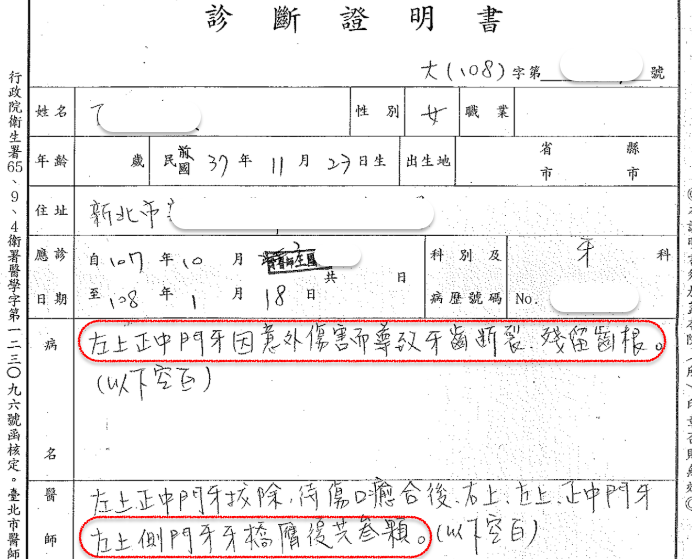 診斷證明書
大(108)字第 號
姓名 性別 女 職業
年齡 歲 民前國 37年11月23日生 出生地 省市 縣市
住址 新北市
應診日期 自107年10月 日 共 日
至108年1月18日
科別及病歷號碼 牙科 No.
病名
左上正中門牙因意外傷害而導致牙齒斷裂、殘留齒根。
(以下空白)
醫師
左上正中門牙拔除,待傷口癒合後、右上、左上、正中門牙
左上側門牙牙橋贋復共參顆。(以下空白)
行政院衛生署65、9、4衛署醫字第一二三〇九六號函核定。臺北市醫師